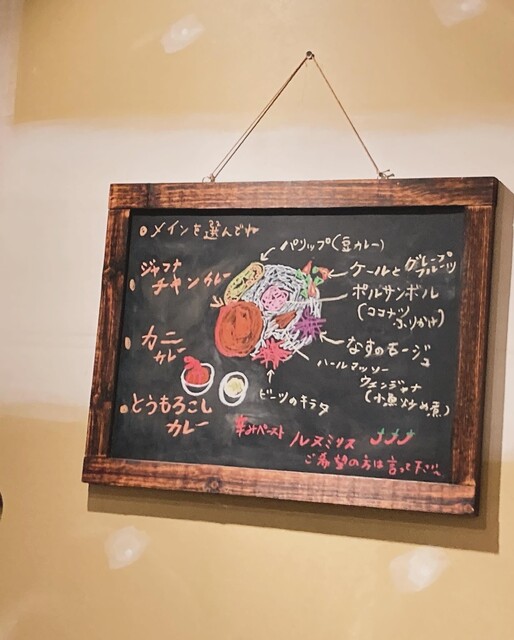 メインを選んでね
パリップ(豆カレー)
ジャフナ
チキンカレー
ケールとグレープ
フルーツ
ポルサンボル
(ココナツ
ふりかけ)
カニ
カレー
なすのモージュ
ハールマッソー
ウェンジャナ
(小魚炒め煮)
ビーツのキラタ
とうもろこし
カレー
辛みペースト ルヌミリス
ご希望の方は言って下さい